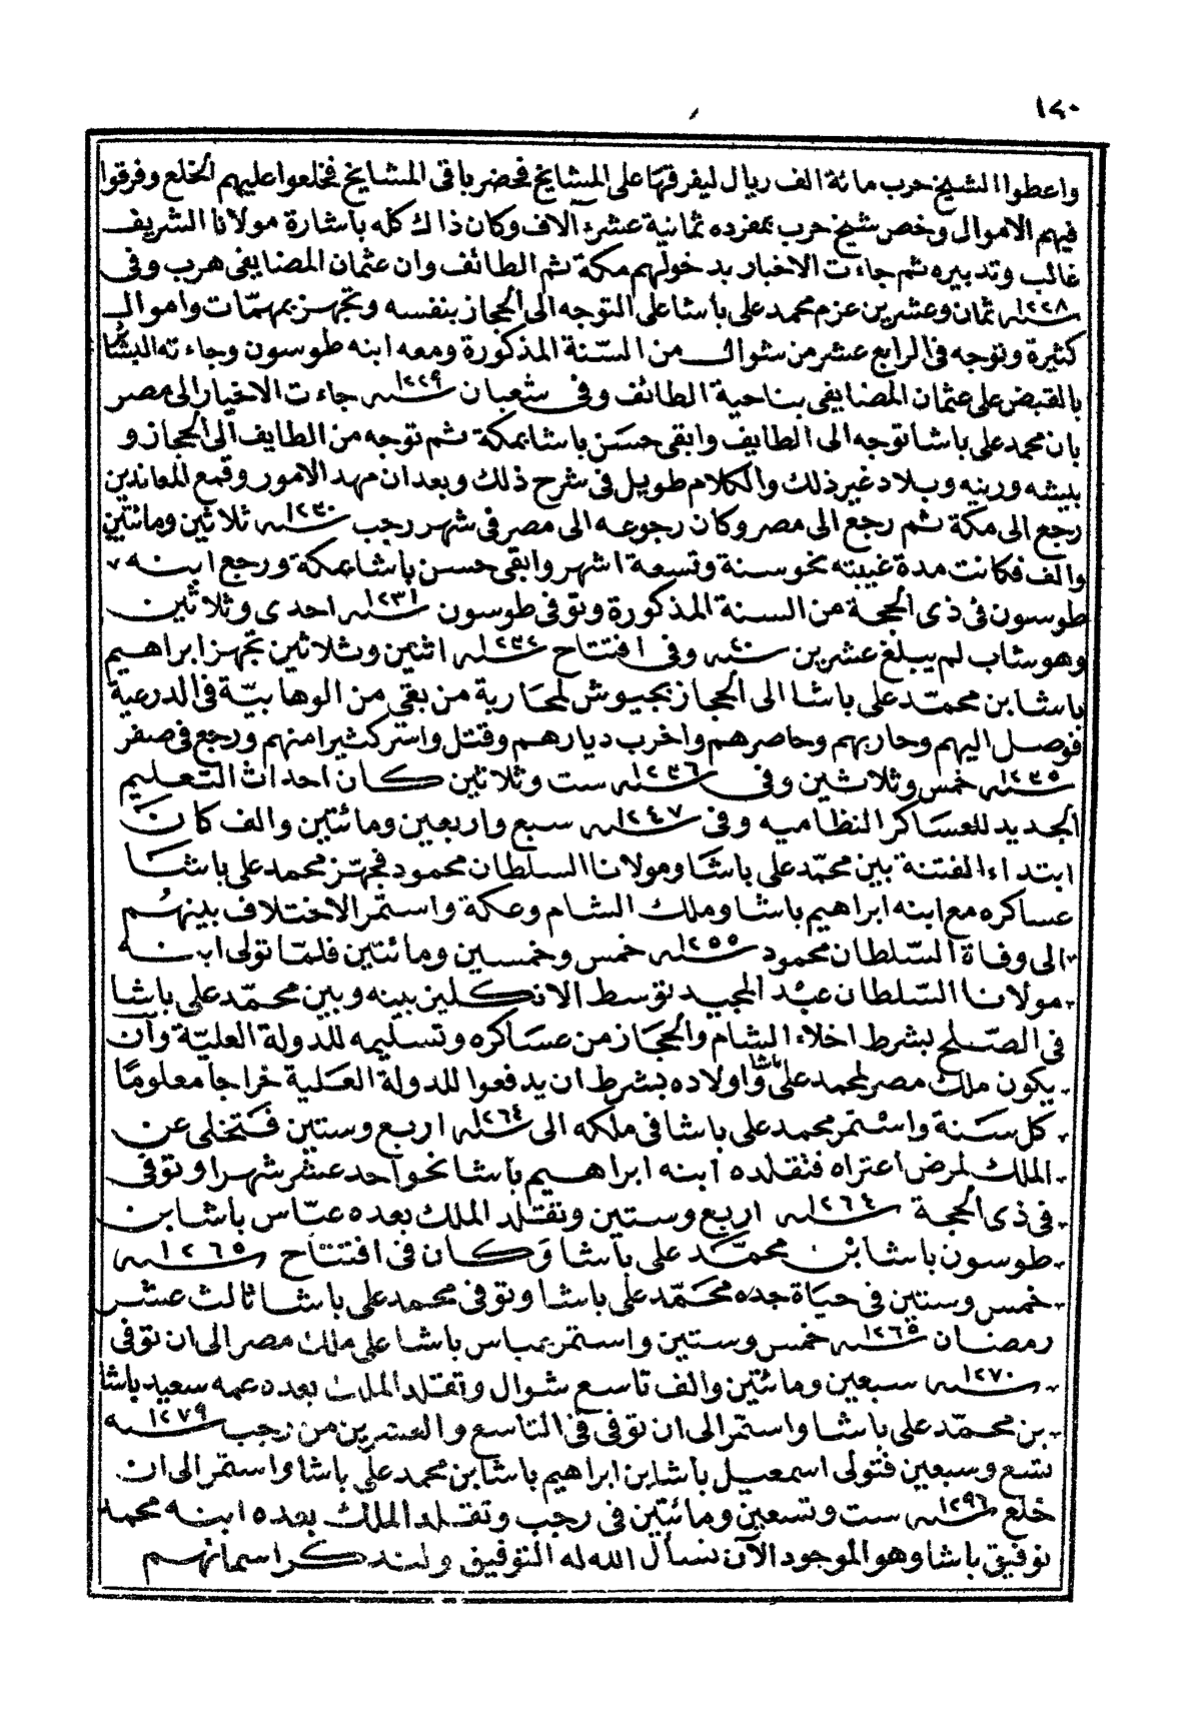 ١٧٠
واعطوا الشيخ حرب مائة الف ريال ليفرقها على المشايخ فحضر باقى المشايخ فخلعوا عليهم الخلع وفرقوا
فيهم الاموال وخص شيخ حرب بمفرده ثمانية عشر آلاف وكان ذاك كله باشارة مولانا الشريف
غالب وتدبيره ثم جاءت الاخبار بدخولهم مكة ثم الطائف وان عثمان المضايفى هرب وفى
سنه ١٢٢٨ ثمان وعشرين عزم محمد على باشا على التوجه الى الحجاز بنفسه وتجهز بمهمّات واموال
كثيرة وتوجه فى الرابع عشر من شوال من السّنة المذكورة ومعه ابنه طوسون وجاءته البشائر
بالقبض على عثمان المضايفى بناحية الطائف وفى شعبان سنه ١٢٢٩ جاءت الاخبار الى مصر
بان محمد على باشا توجه الى الطايف وابقى حسَن باشا بمكة ثم توجه من الطايف الى الحجاز و
بيشه ورينه وبلاد غير ذلك والكلام طويل فى شرح ذلك وبعد ان مهد الامور وقمع المعاندين
رجع الى مكة ثم رجع الى مصر وكان رجوعه الى مصر فى شهر رجب سنه ١٢٣٠ ثلاثين ومائتين
والف فكانت مدة غيبته نحو سنة وتسعة اشهر وابقى حسن باشا بمكة ورجع ابنه
طوسون فى ذى الحجة من السنة المذكورة وتوفى طوسون سنه ١٢٣١ احدى وثلاثين
وهو شاب لم يبلغ عشرين سنه ٢٠ وفى افتتاح سنه ١٢٣٢ اثنين وثلاثين تجهز ابراهيم
باشا بن محمّد على باشا الى الحجاز بجيوش لمحاربة من بقى من الوهابيّة فى الدرعية
فوصل اليهم وحاربهم وحاصرهم واخرب ديارهم وقتل واسر كثيرا منهم ورجع فى صفر
سنه ١٢٣٥ خمس وثلاثين وفى سنه ١٢٣٦ ست وثلاثين كان احداث التعليم
الجديد للعساكر النظاميه وفى سنه ١٢٤٧ سبع واربعين ومائتين والف كان
ابتداء الفتنة بين محمّد على باشا ومولانا السلطان محمود فجهّز محمد على باشا
عساكره مع ابنه ابراهيم باشا وملك الشام وعكة واستمر الاختلاف بينهُم
الى وفاة السّلطان محمود سنه ١٢٥٥ خمس وخمسين ومائتين فلمّا تولى ابنه
مولانا السّلطان عبْد المجيد توسط الانكليز بينه وبين محمّد على باشا
فى الصّلح بشرط اخلاء الشام والحجاز من عساكره وتسليمه للدولة العليّة وان
يكون ملك مصر لمحمد على باشا واولاده بشرط ان يدفعوا للدولة العَلية خراجا معلومًا
كل سَنة واسْتمر محمد على باشا فى ملكه الى سنه ١٢٦٤ اربع وستين فتخلى عن
الملك لمرض اعتراه فتقلده ابنه ابراهيم باشا نحو احد عشر شهرا وتوفى
فى ذى الحجة سنه ١٢٦٤ اربع وستين وتقلد الملك بعده عبّاس باشا بن
طوسون باشا بْن محمّد على باشا وَكان فى افتتاح سنه ١٢٦٥
خمس وستين فى حيَاة جده محَمّد على باشا وتوفى محمد على باشا ثالث عشر
رمضان سنه ١٢٦٥ خمس وستين واستمر عباس باشا على ملك مصر الى ان توفى
سنه ١٢٧٠ سبعين ومائتين والف تاسع شوال وتقلد الملك بعده عمه سعيد باشا
بن محمّد على باشا واستمّر الى ان توفى فى التاسع والعشرين من رجب سنه ١٢٧٩
تسع وسبعين فتولى اسمعيل باشا بن ابراهيم باشا بن محمد على باشا واستمر الى ان
خلع سنه ١٢٩٦ ست وتسعين ومائتين فى رجب وتقلد الملك بعده ابنه محمد
توفيق باشا وهو الموجود الآن نسأل الله له التوفيق ولنذكر اسمائهم